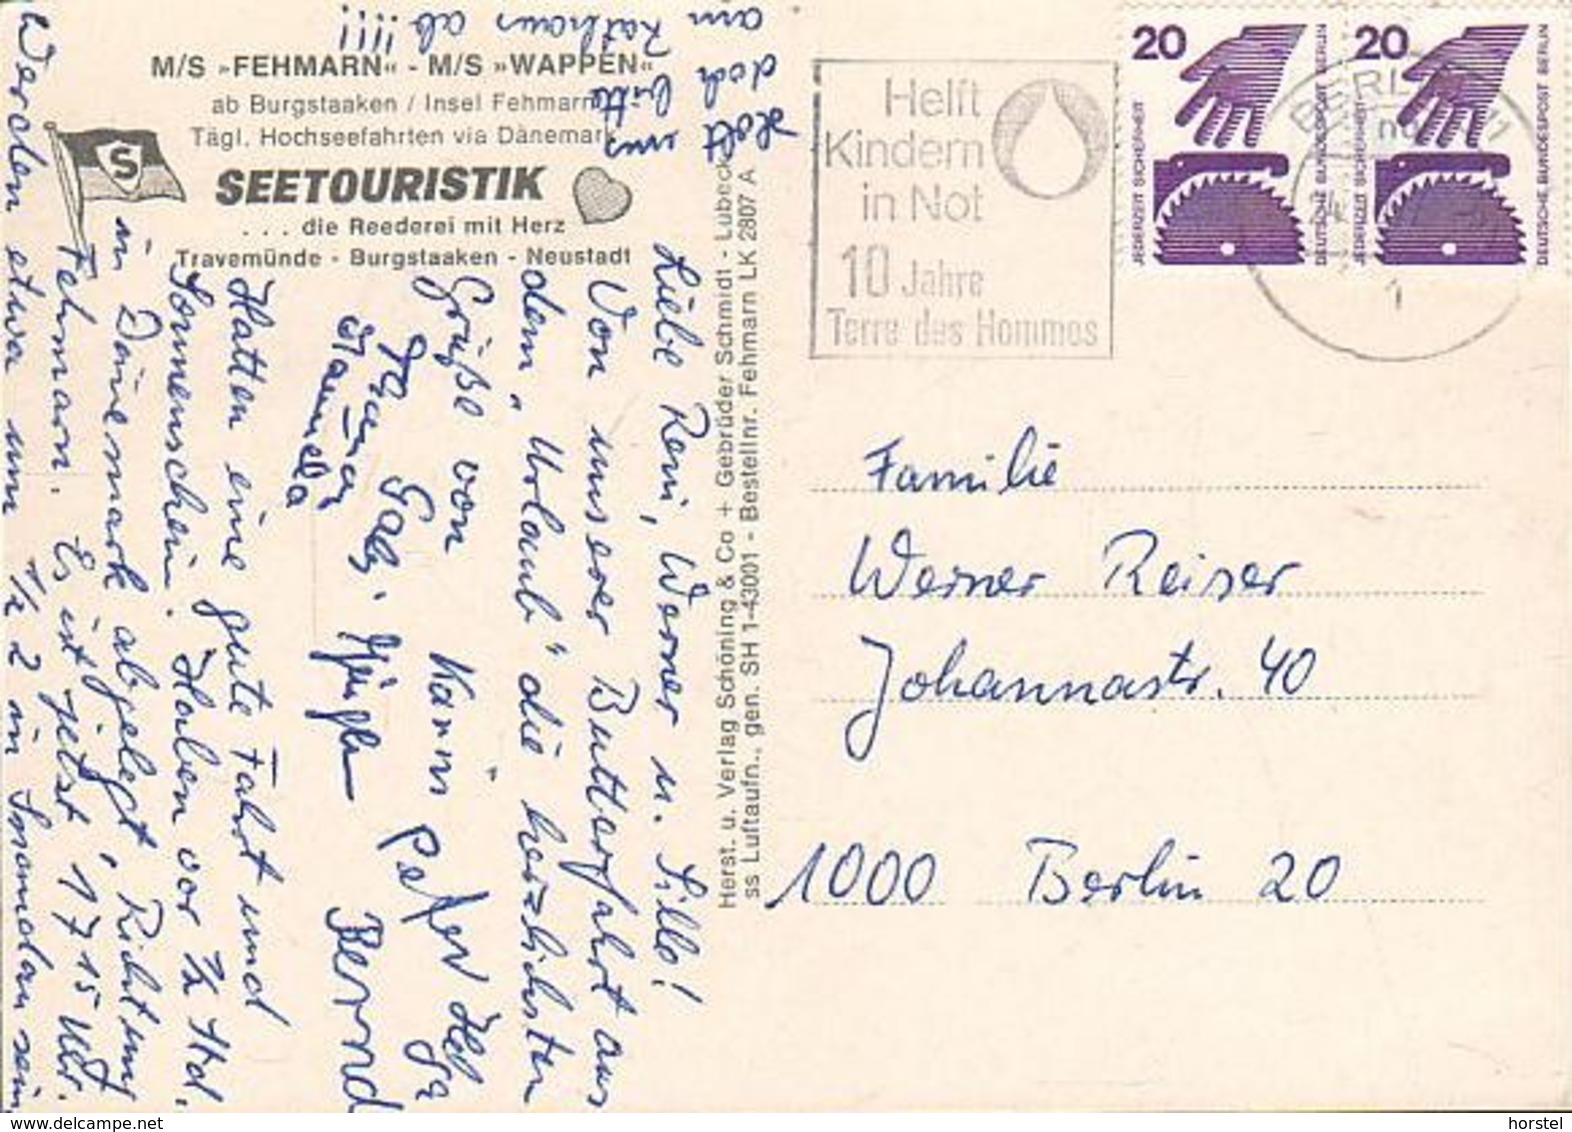 M/S »FEHMARN« - M/S »WAPPEN«
ab Burgstaaken / Insel Fehmarn
Tägl. Hochseefahrten via Dänemark
SEETOURISTIK
. . . die Reederei mit Herz
Travemünde - Burgstaaken - Neustadt
S
Liebe Reni, Werner u. Sille!
Von unserer Butterfahrt aus
dem „Urlaub“ die herzlichsten
Grüße von Karin Peter Helga
Gaby. Bernd
Manuela
Hatten eine gute Fahrt und
Sonnenschein. Haben vor 1/2 Std.
in Dänemark abgelegt, Richtung
Fehmarn. Es ist jetzt 17 15 Uhr.
Werden etwa um 1/2 2 in Spandau sein.
Holt uns
doch bitte
am Rathaus ab!!!!
Herst. u. Verlag Schöning & Co + Gebrüder Schmidt - Lübeck
ss Luftaufn., gen. SH 1-43001 - Bestellnr. Fehmarn LK 2807 A
Helft
Kindern
in Not
10 Jahre
Terre des Hommes
BERLIN 11
24
1
20
JEDERZEIT SICHERHEIT
DEUTSCHE BUNDESPOST BERLIN
20
JEDERZEIT SICHERHEIT
DEUTSCHE BUNDESPOST BERLIN
Familie
Werner Reiser
Johannastr. 40
1000 Berlin 20
horstel